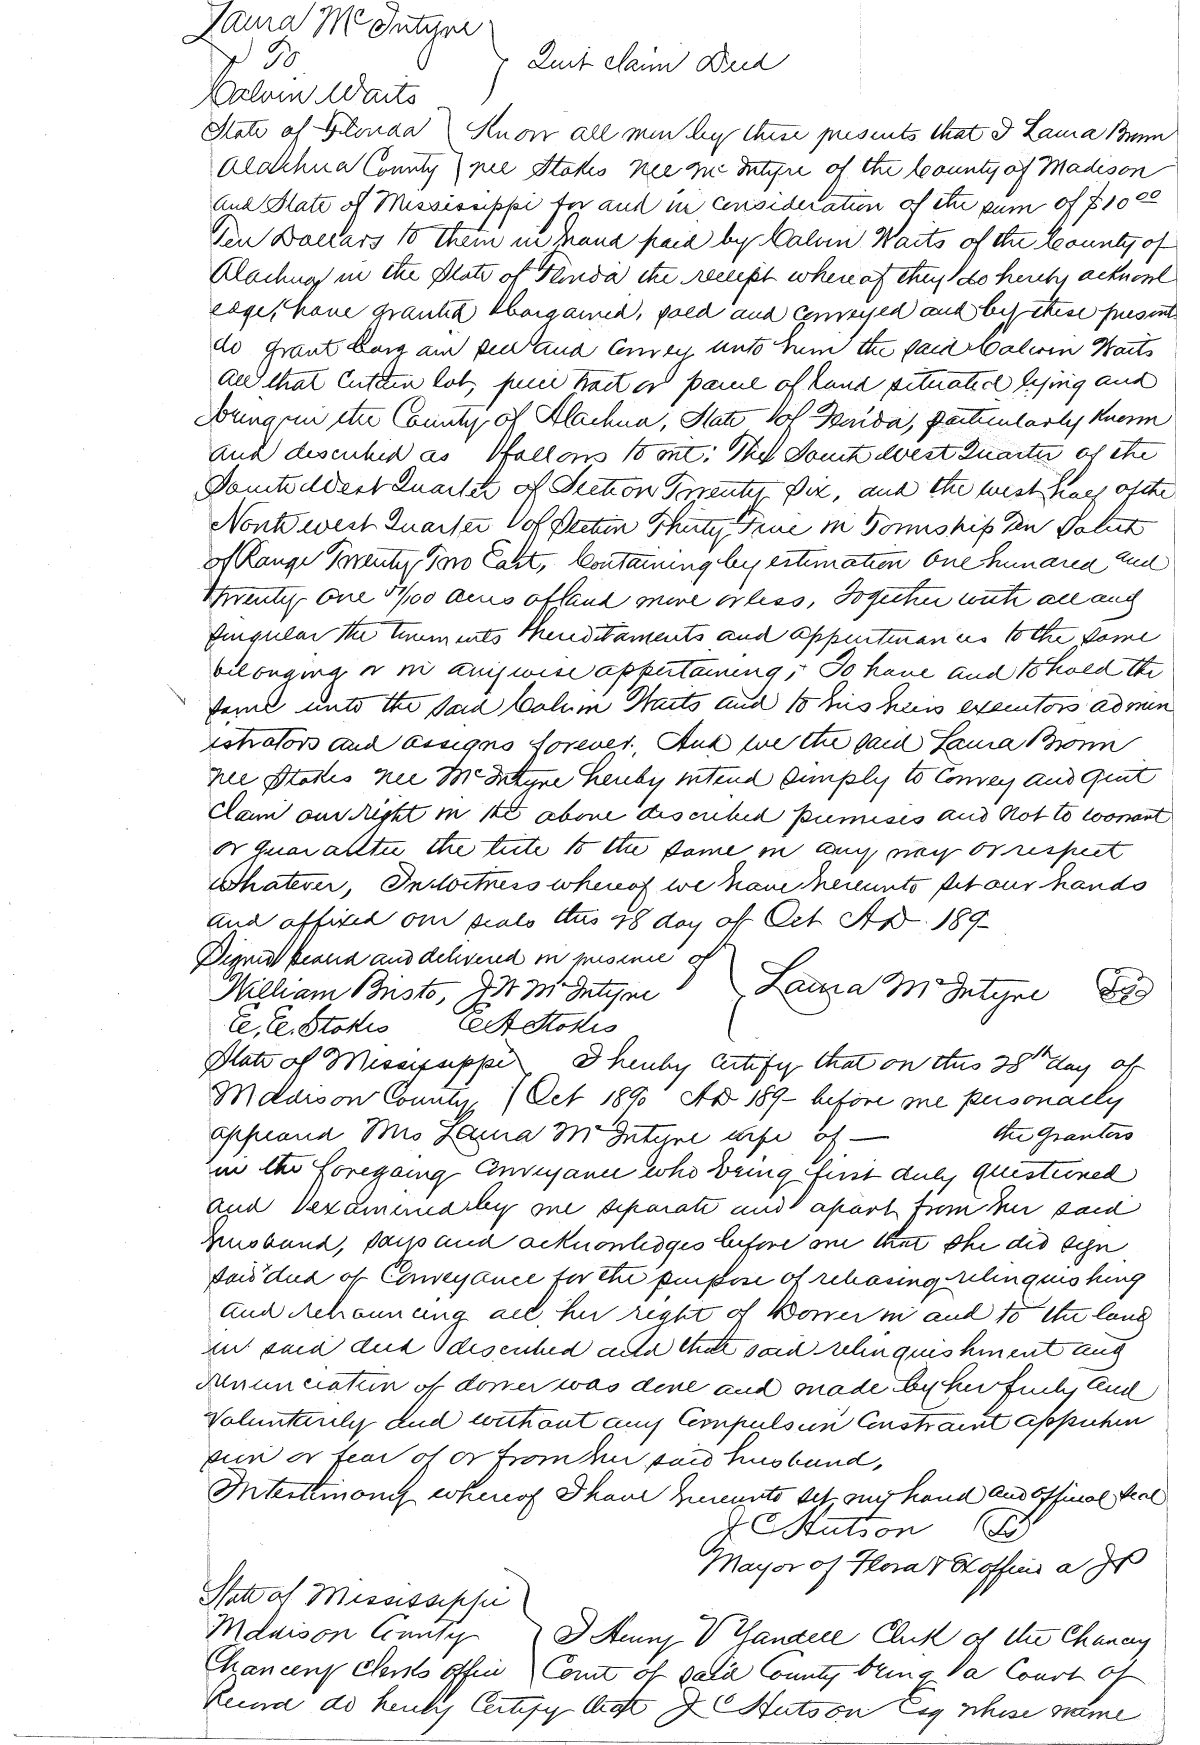 Laura McIntyre
To
Quit claim Deed
Calvin Waits
State of Florida } Know all men by these presents that I Laura Brown
Alachua County } nee Stokes nee McIntyre of the County of Madison
and State of Mississippi for and in consideration of the sum of $10.00
Ten Dollars to them in hand paid by Calvin Waits of the County of
Alachua in the State of Florida the receipt whereof they do hereby acknowl
edge, have granted bargained, sold and conveyed and by these present
do grant bargain sell and convey unto him the said Calvin Waits
all that certain lot, piece tract or parcel of land situated lying and
being in the County of Alachua, State of Florida, particularly known
and described as follows to wit: The South West Quarter of the
South West Quarter of Section Twenty Six, and the west half of the
North west Quarter of Section Thirty Five in Township Ten South
of Range Twenty Two East, Containing by estimation One hundred and
twenty one /100 acres of land more or less, Together with all and
singular the tenements hereditaments and appurtenances to the same
belonging or in anywise appertaining; To have and to hold the
same unto the said Calvin Waits and to his heirs executors admin
istrators and assigns forever. And we the said Laura Brown
nee Stokes nee McIntyre hereby intend simply to Convey and Quit
Claim our right in the above described premises and not to warrant
or guarantee the title to the same in any way or respect
whatever, In witness whereof we have hereunto set our hands
and affixed our seals this 28 day of Oct AD 189-
Signed sealed and delivered in presence of
William Bristo, J W McIntyre } Laura McIntyre
E. E. Stokes E A Stokes
State of Mississippi } I hereby certify that on this 28th day of
Madison County } Oct 1890 AD 189- before me personally
appeard Mrs Laura McIntyre wife of — the grantors
in the foregoing Conveyance who being first duly questioned
and examined by me separate and apart from her said
husband, says and acknowledges before me that she did sign
said deed of Conveyance for the purpose of releasing relinquishing
and renouncing all her right of Dower in and to the land
in said deed described and that said relinquishment and
renunciation of dower was done and made by her freely and
Voluntarily and without any Compulsion Constraint apprehen
sion or fear of or from her said husband,
In testimony whereof I have hereunto set my hand and official seal
J C Hutson (LS)
Mayor of Flora & Exofficio a JP
State of Mississippi
Madison County } I Henry V Yandell Clerk of the Chancery
Chancery Clerks office } Court of said County being a Court of
Record do hereby Certify that J C Hutson Esq whose name